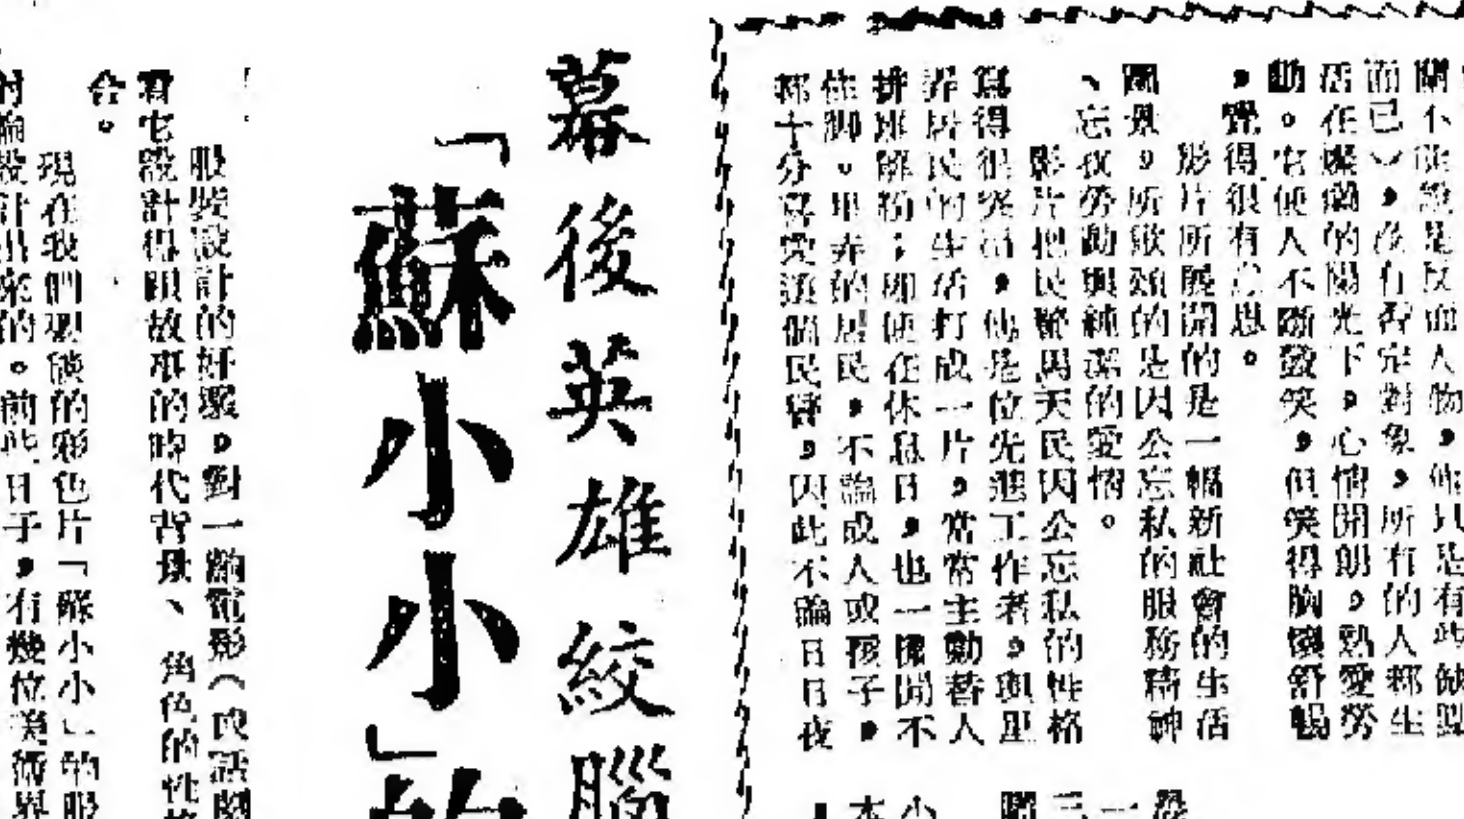 關不能說是反面人物,他只是有些缺點
而已),沒有否定對象,所有的人都生
活在燦爛的陽光下,心情開朗,熱愛勞
動。它使人不斷發笑,但笑得胸懷舒暢
,覺得很有意思。
影片所展開的是一幅新社會的生活
圖景,所歌頌的是因公忘私的服務精神
、忘我勞動與純潔的愛情。
影片把民警馬天民因公忘私的性格
寫得很突出,他是位先進工作者,與里
弄居民的生活打成一片,常常主動替人
排難解紛;即使在休息日,也一樣閒不
住脚。里弄的居民,不論成人或孩子,
都十分喜愛這個民警,因此不論日日夜
幕後英雄絞腦
「蘇小小」的
服裝設計的好壞,對一齣電影(或話劇
看它設計得跟故事的時代背景、角色的性格
合。
現在我們要談的彩色片「蘇小小」的服
討論設計出來的。前些日子,有幾位美術界